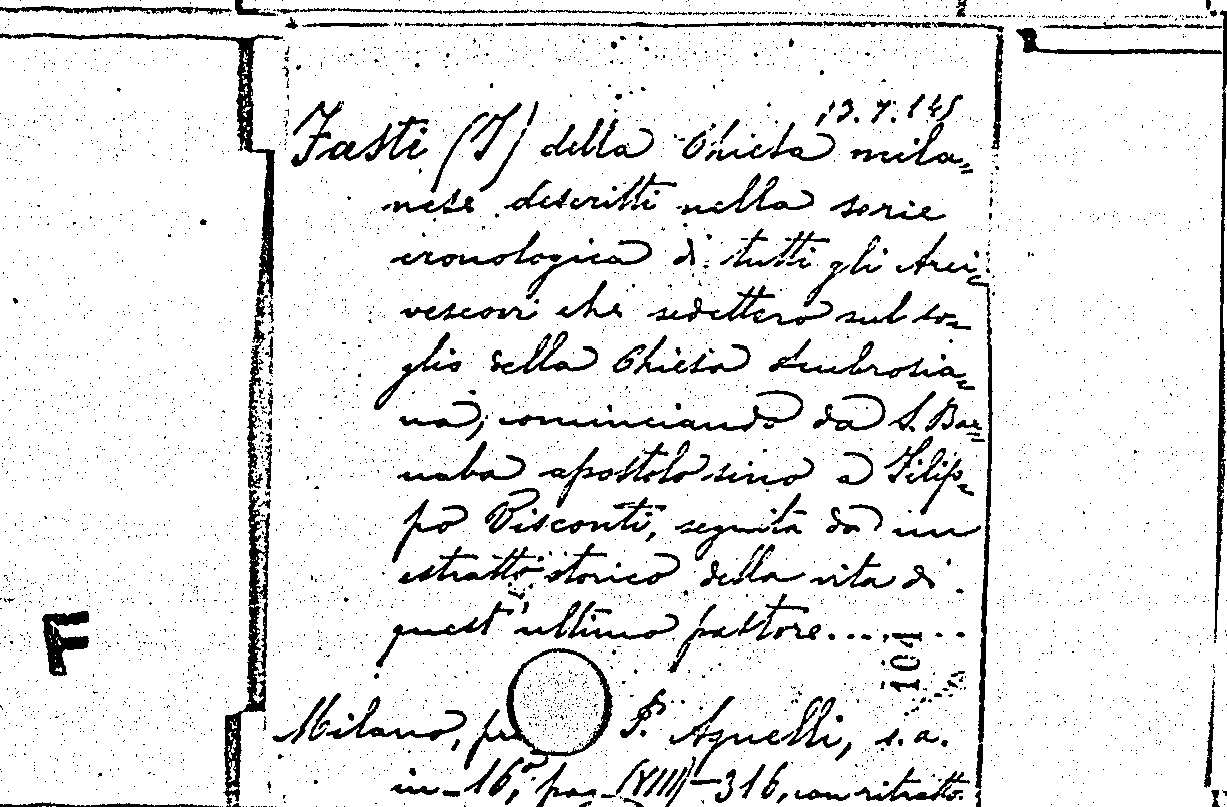 13.7.145
Fasti (I) della Chiesa mila=
nese descritti nella serie
cronologica di tutti gli Arci=
vescovi che sedettero sul so=
glio della Chiesa Ambrosia=
na, cominciando da S. Bar=
naba apostolo sino a Filip=
po Visconti, seguita da un
estratto storico della vita di
quest'ultimo pastore........
104
F
Milano, P. Agnelli, s.a.
in-16°, pag. (VIII)-316, con ritratto.